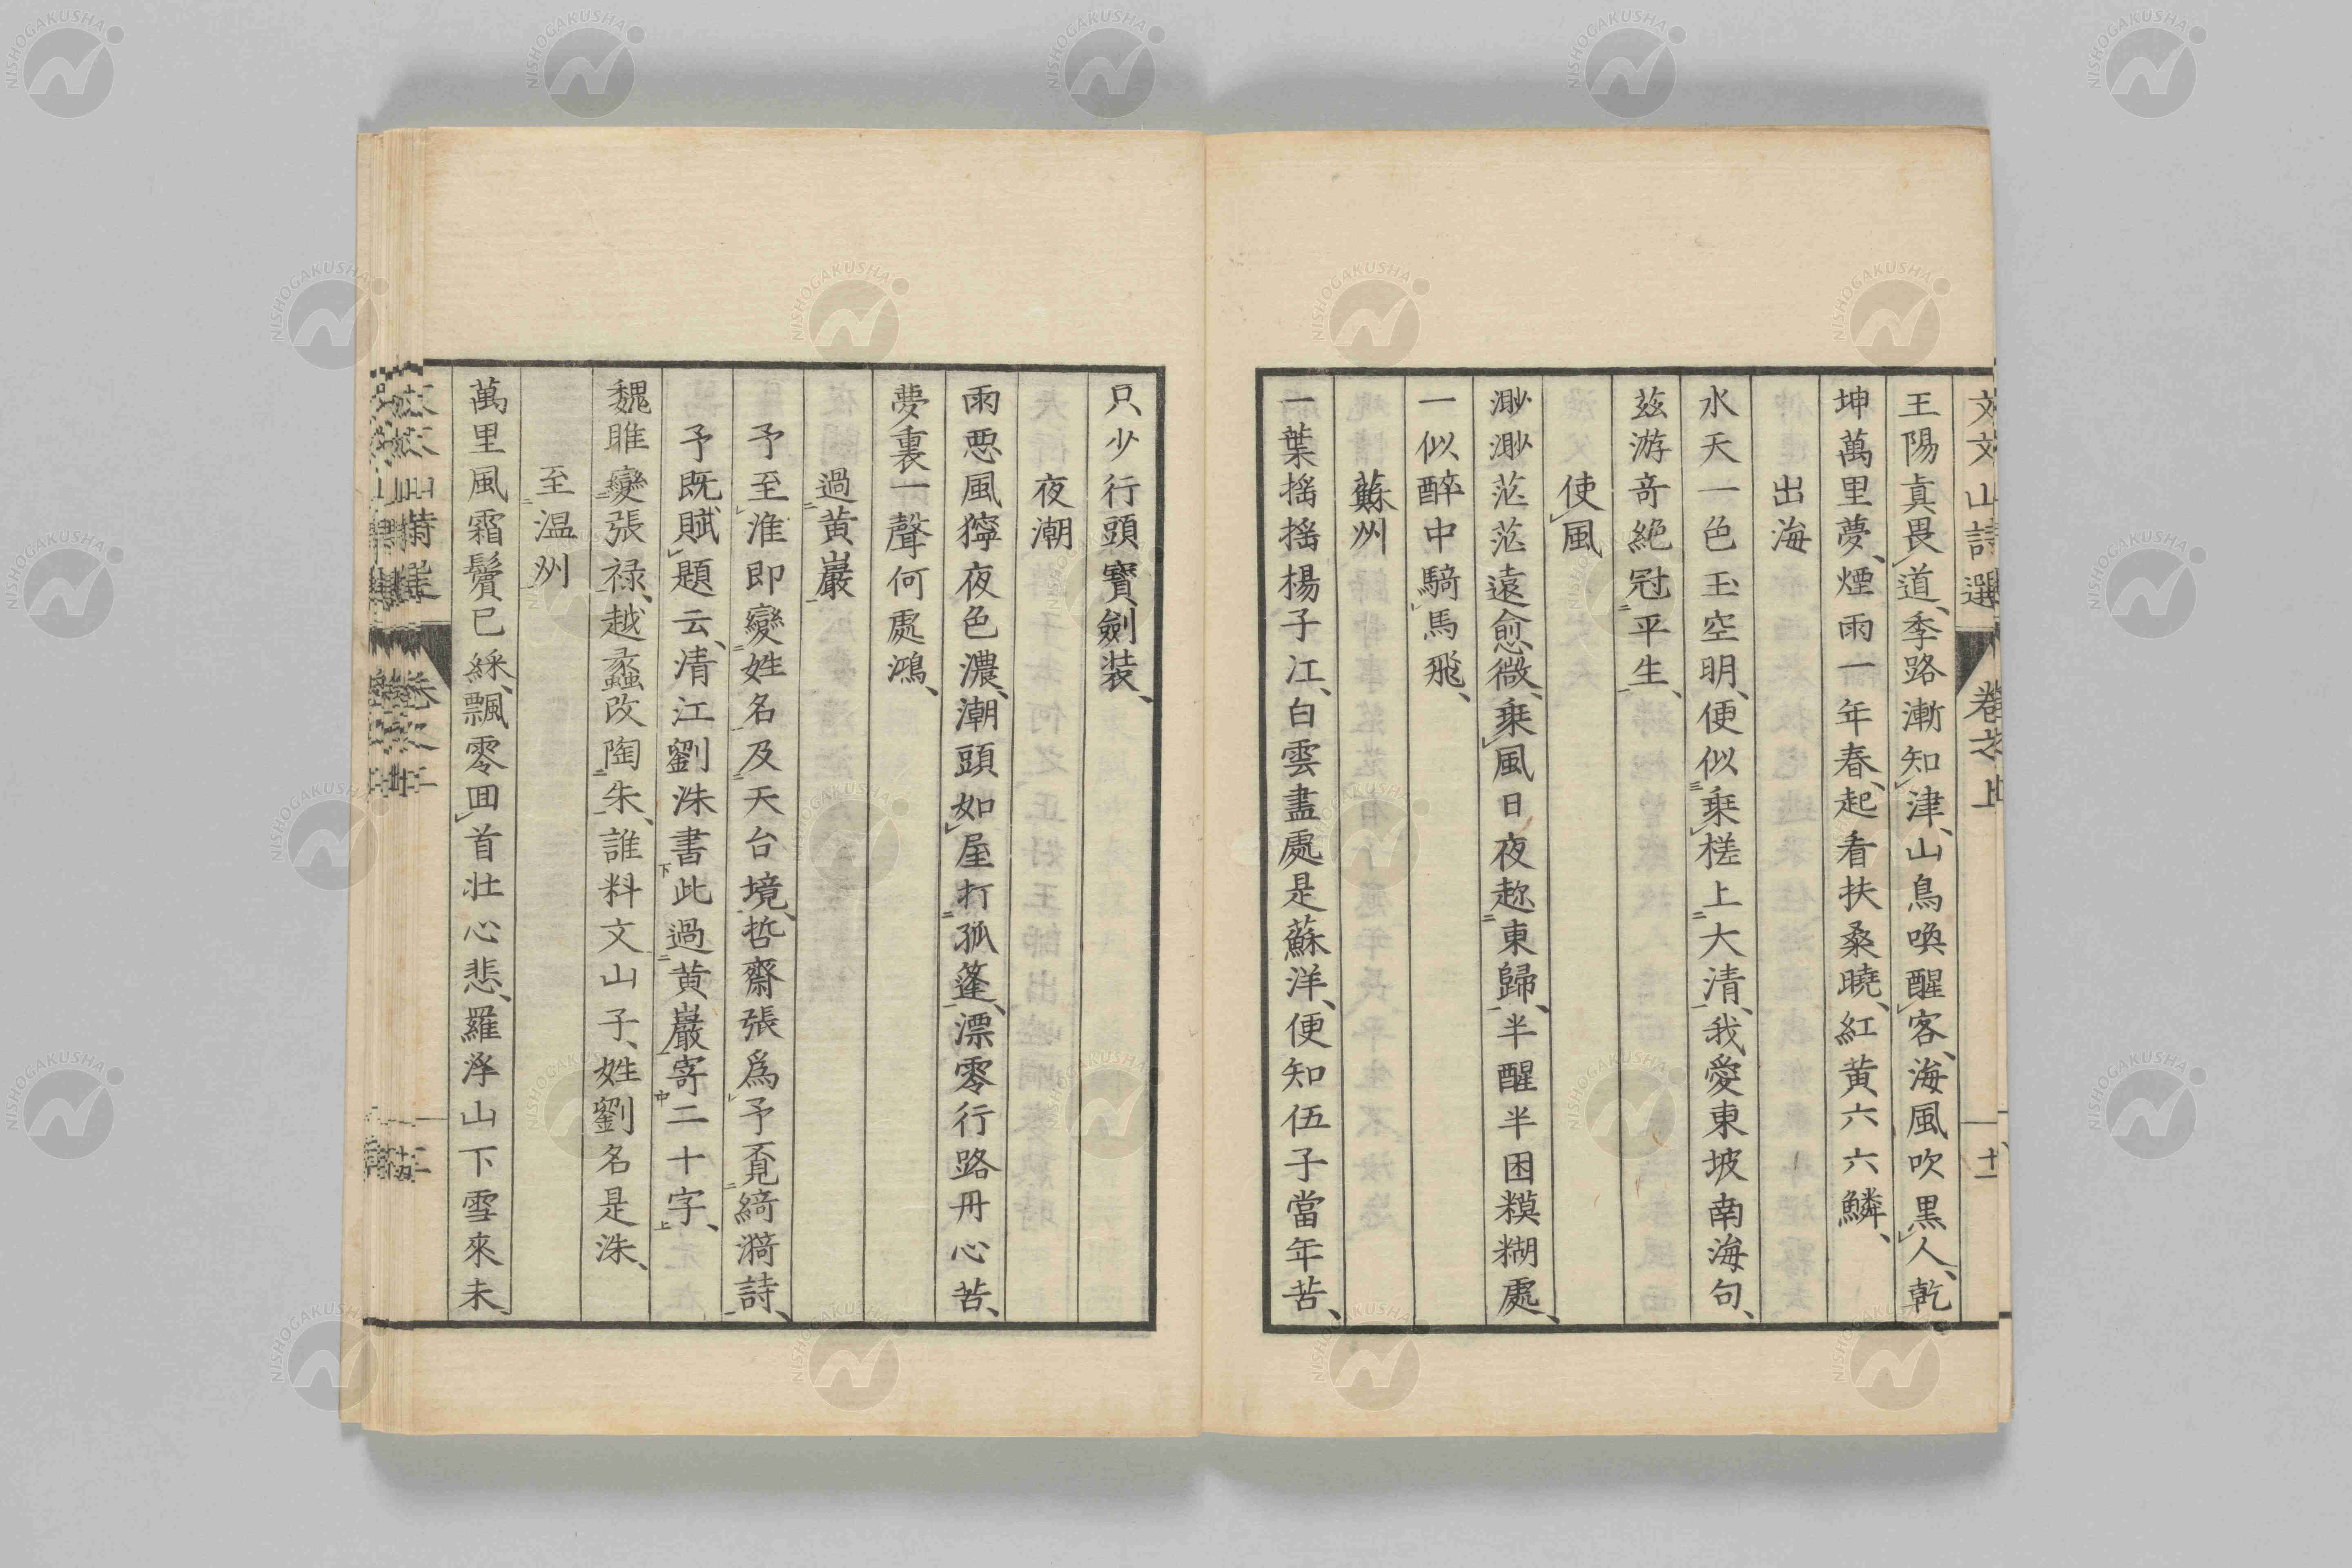 文文山詩選 卷之上 十一
王陽真畏道、季路漸知津、山鳥喚醒客、海風吹黒人、乾
坤萬里夢、煙雨一年春、起看扶桑曉、紅黃六六鱗、
出海
水天一色玉空明、便似乗槎上大清、我愛東坡南海句、
茲游奇絕冠平生、
使風
渺渺茫茫遠愈微、乗風日夜趂東歸、半醒半困糢糊處、
一似醉中騎馬飛、
蘇州
一葉揺揺楊子江、白雲盡處是蘇洋、便知伍子當年苦、
只少行頭寳劍装、
夜潮
雨惡風獰夜色濃、潮頭如屋打孤蓬、漂零行路丹心苦、
夢裏一聲何處鴻、
過黄巖
予至淮即變姓名及天台境、哲齋張爲予覓綺漪詩、
予既賦題云、清江劉洙書此過黄巖寄二十字、
魏睢變張禄、越蠡改陶朱、誰料文山子、姓劉名是洙、
至温州
萬里風霜鬢已綵、飄零囬首壮心悲、羅浮山下雪來未、
NISHOGAKUSHA